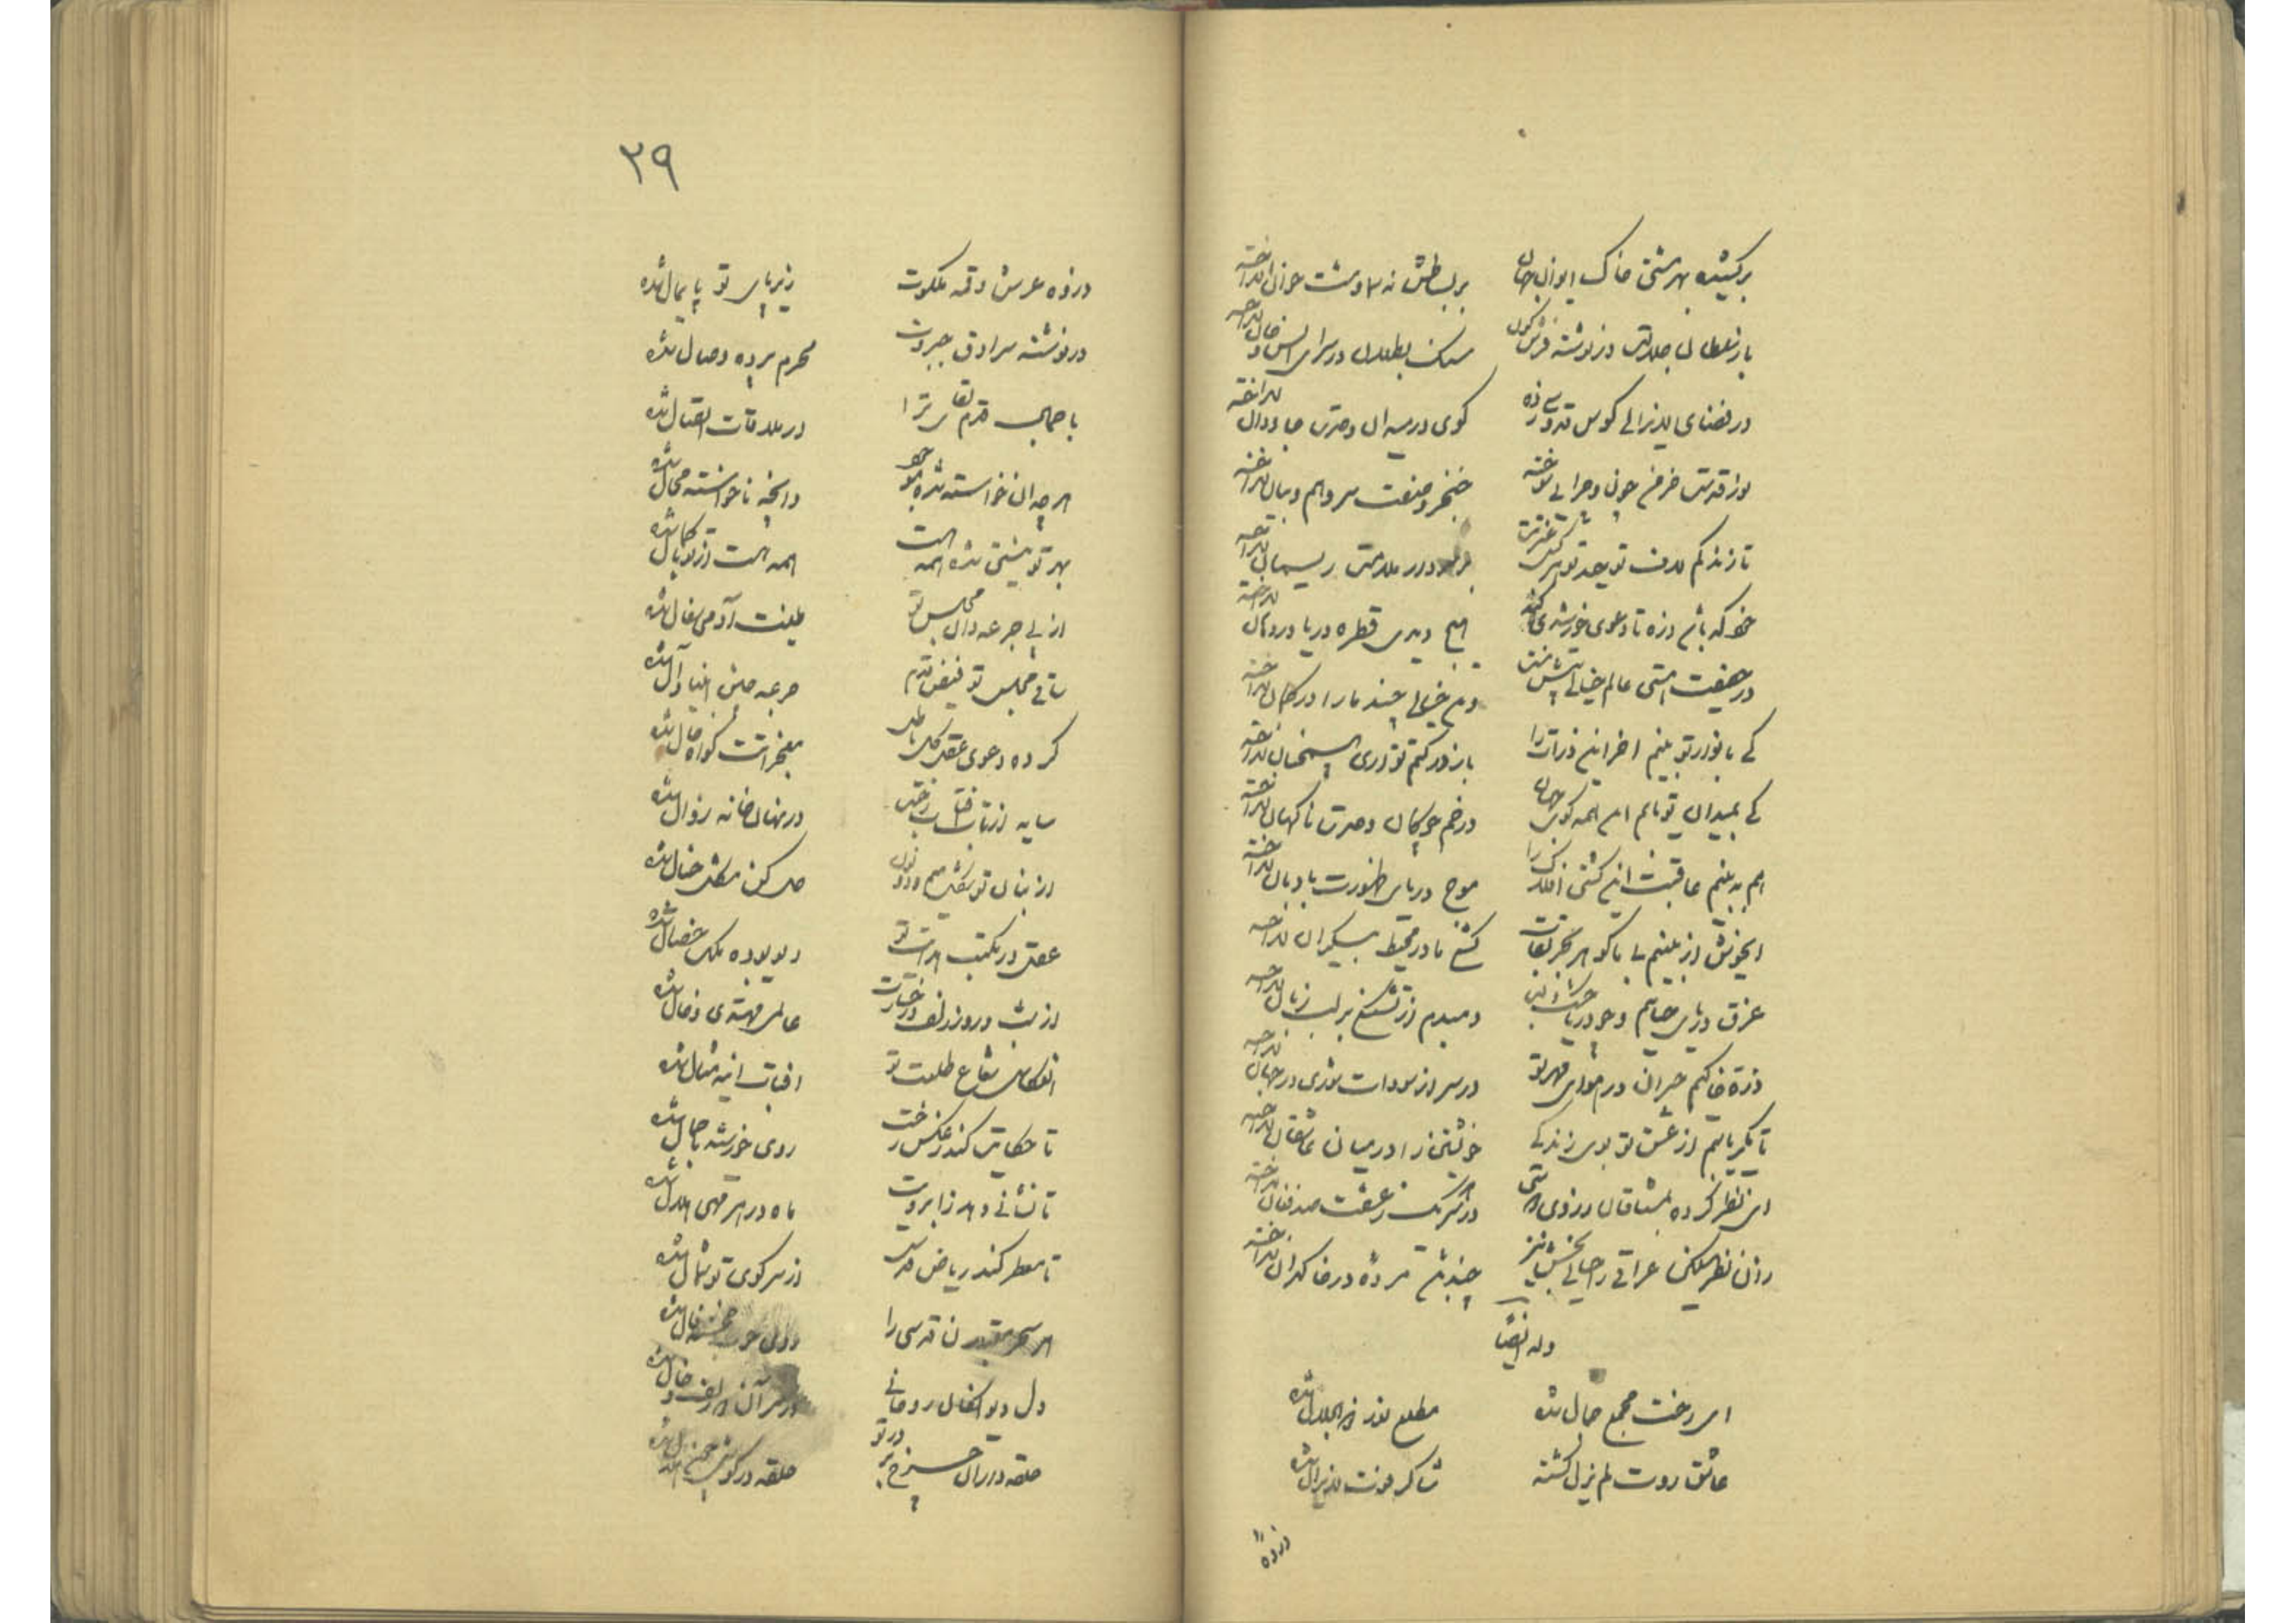 برکشیده بهر مشتی خاک ایوان جهان
بر بساطش نه سماوات خوان انداخته
باز سلطان جلالت در نوشته فرش کون
سنگ بطلان در سرای انس و جان انداخته
در فضای لایزالی کوس قدوسی زده
گوی در میدان وحدت جاودان انداخته
نور قدست خرمن چون و چرایی سوخته
خنجر وصفت سر وهم و بیان انداخته
تا زند کم لاف توحید تو هر کس غیرتت
در علامت ریسمان انداخته
خود که باشم ذره تا دعوی خورشیدی کند
هیچ دیدی قطره دریا در دهان انداخته
در حقیقت هستی عالم خیالی بیش نیست
وین خیالی چند ما را در گمان انداخته
کی با نوار تو بینم آخر این ذرات را
باز در کتم تواری همچنان انداخته
کی بمیدان تو یابم این همه گوی جهان
در خم چوگان وحدت ناگهان انداخته
هم به بینم عاقبت این کشتی افلاک را
موج دریای ظهورت بادبان انداخته
ای خوش ار بینیم بی ما گوهر بحر بقات
کشتی ما در محیط بیکران انداخته
غرق دریای حیاتیم و چو دریا خشک لب
دمبدم از تشنگی بر لب زبان انداخته
ذره خاکیم حیران در هوای مهر تو
در سر از سودات شوری در جهان انداخته
تا بگیریابیم از عشق تو بوی زندگی
خویشتن را در میان عاشقان انداخته
ای نظر کرده بمشتاقان ز روی دوستی
در سر هر یک ز عشقت صد فغان انداخته
زان نظر بفکن عراقی را حیاتی بخش نیز
چند باشد مرده در خاکدان انداخته
وله ایضاً
ای رخت مجمع جمال شده
مطلع نور ذوالجلال شده
عاشق روت لم یزل گشته
شاکر خوت لایزال شده
ذروه
۳۹
ذروه عرش و قبه ملکوت
زیر پای تو پایمال شده
در نوشته سرادق جبروت
محرم پرده وصال شده
با جمال قدم بقای ترا
در ملاقات اتصال شده
هر چه آن خواسته شده موجود
وانچه ناخواسته محال شده
بهر تو نیستی شده همه هست
همه هست از تو با کمال شده
از پی جرعه دان مجلس تو
طینت آدمی سفال شده
ساقی مجلس تو فیض قدم
جرعه چینش انبیا و آل شده
کرده دعوی عقل کل باطل
معجزاتت گواه حال شده
سایه از تاب آفتاب رخت
در نهانخانه زوال شده
از بنان تو شکل میم و دو نون
حل کن مشکل خیال شده
عقل در مکتب هدایت تو
دیو بوده ملک خصال شده
از شب و روز زلف و رخسارت
عالمی مهتدی و ضال شده
انعکاس شعاع طلعت تو
آفتاب آینه مثال شده
تا حکایت کند ز عکس رخت
روی خورشید با جمال شده
تا نشانی دهد ز ابرویت
ماه در هر مهی هلال شده
تا معطر کند ریاض قدست
از سر کوی تو شمال شده
هر سحر مقبلان قدسی را
روی خوب خجسته فال شده
دل دیوانگان روحانی
در سر آن زلف و خال شده
حلقه داران چرخ بر در تو
حلقه در گوش